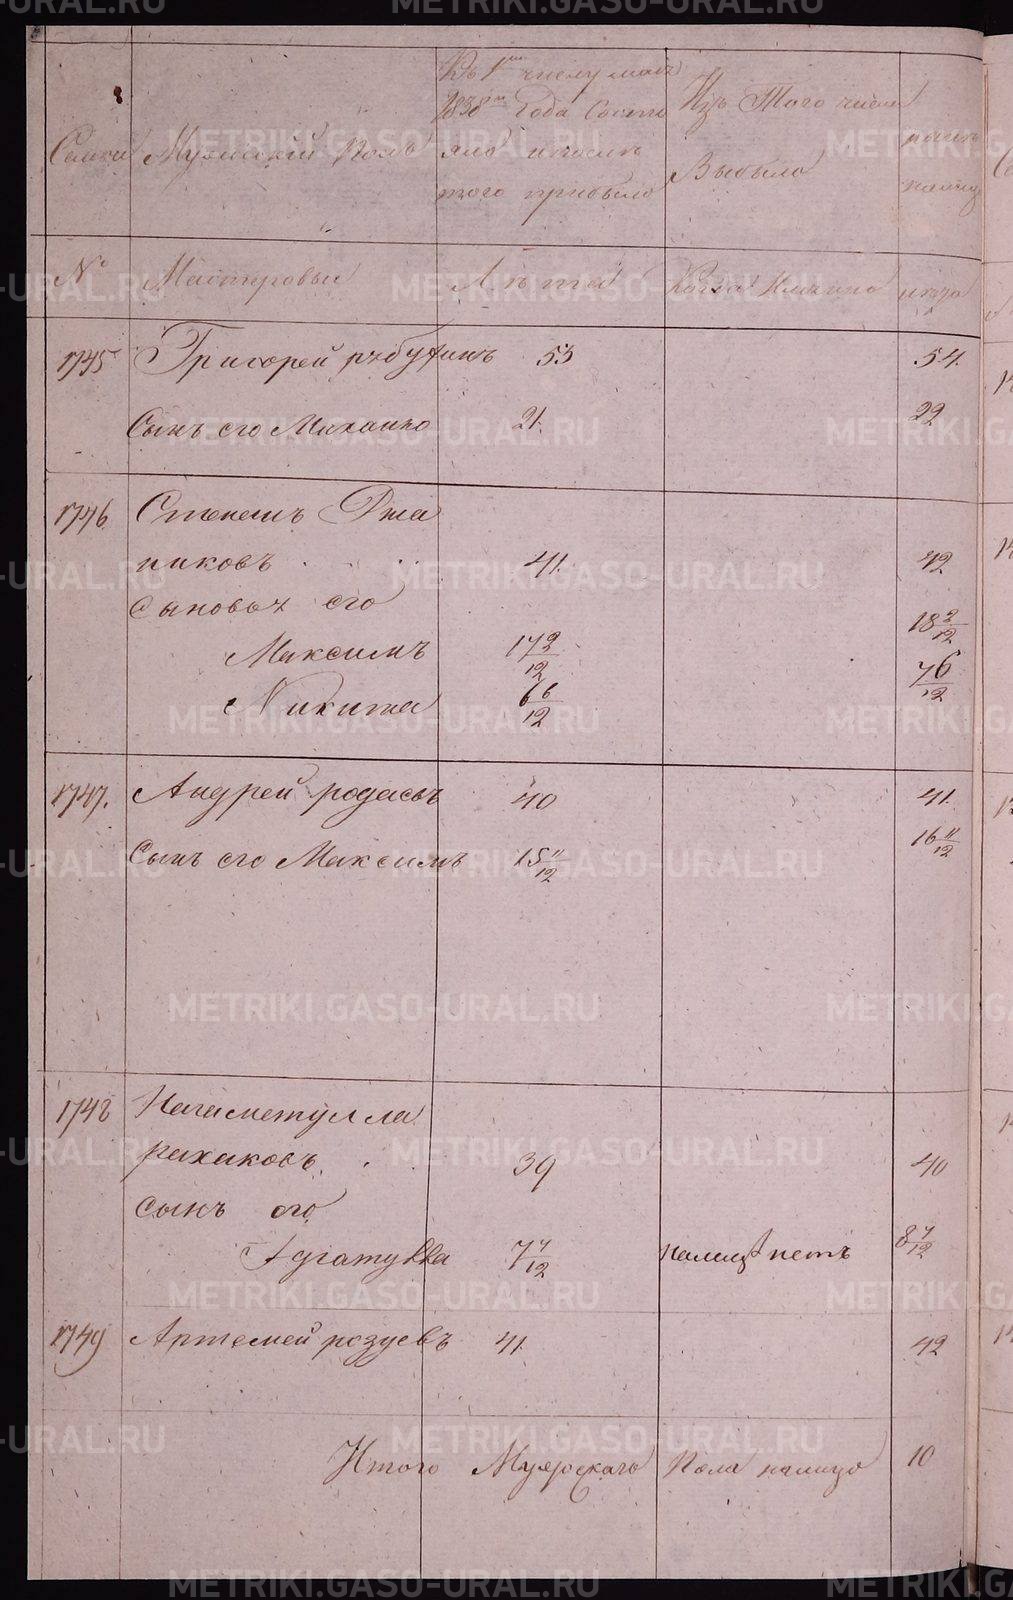 Семьи Мужеский Полъ
Къ 1му числу мая
1838го Года Состо
яло и после
того прибыло
Изъ Того числа
Выбыло
ныне
налицо
№ Мастеровыи Летъ Когда Имянно лета
1745 Григорей 53 54.
Сынъ его Михайло 21. 22
1746 Степанъ
никовъ 41. 42
Сыновья его
Максимъ 17 2/12 18 2/12
Никита 6 6/12 7 6/12
1747. Андрей 40 41.
Сынъ его Максимъ 15 11/12 16 11/12
1748
39 40
сынъ его
7 7/12 налицо нетъ 8 7/12
1749 Артемей розуевъ 41. 42
Итого Мужескаго Пола налицо 10
METRIKI.GASO-URAL.RU